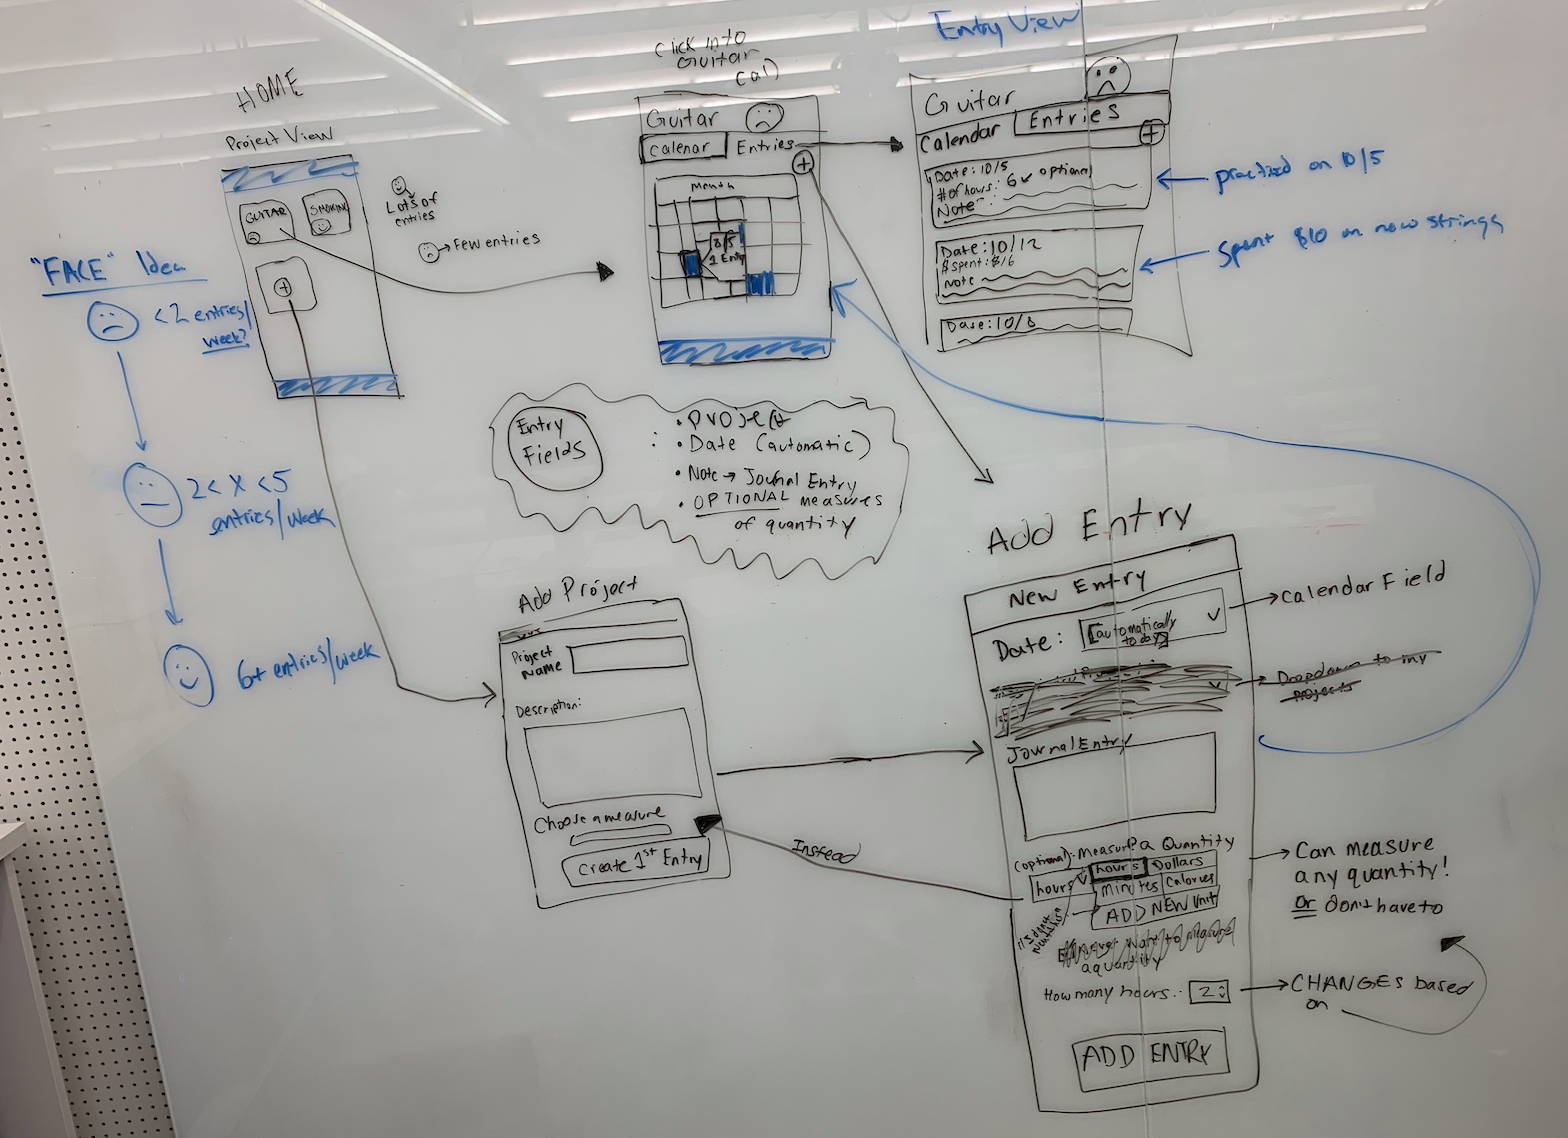 HOME
Project View
GUITAR
SMOKING
Lots of
entries
Few entries
"FACE" Idea
<2 entries/
week?
2 < X < 5
entries/week
6+ entries/week
Click into
Guitar
Cal)
Guitar
Calenar
Entries
Month
1 Entry
Entry View
Guitar
Calendar
Entries
Date: 10/5
# of hours: 6 ✓ optional
Note
Date: 10/12
$ spent: $16
Note
Dase: 10/8
practiced on 10/5
Spent $10 on new strings
Entry
Fields
:
• Project
• Date (automatic)
• Note → Journal Entry
• OPTIONAL measures
of quantity
Add Project
Project
Name
Description:
Choose a measure
Create 1st Entry
Instead
Add Entry
New Entry
Date:
[automatically
today]
Calendar Field
Dropdown to my
projects
Journal Entry
(optional): Measure a Quantity
hours
hours
Dollars
minutes
Calories
ADD NEW Unit
a quantity
How many hours:
2
ADD ENTRY
Can measure
any quantity!
or don't have to
CHANGES based
on